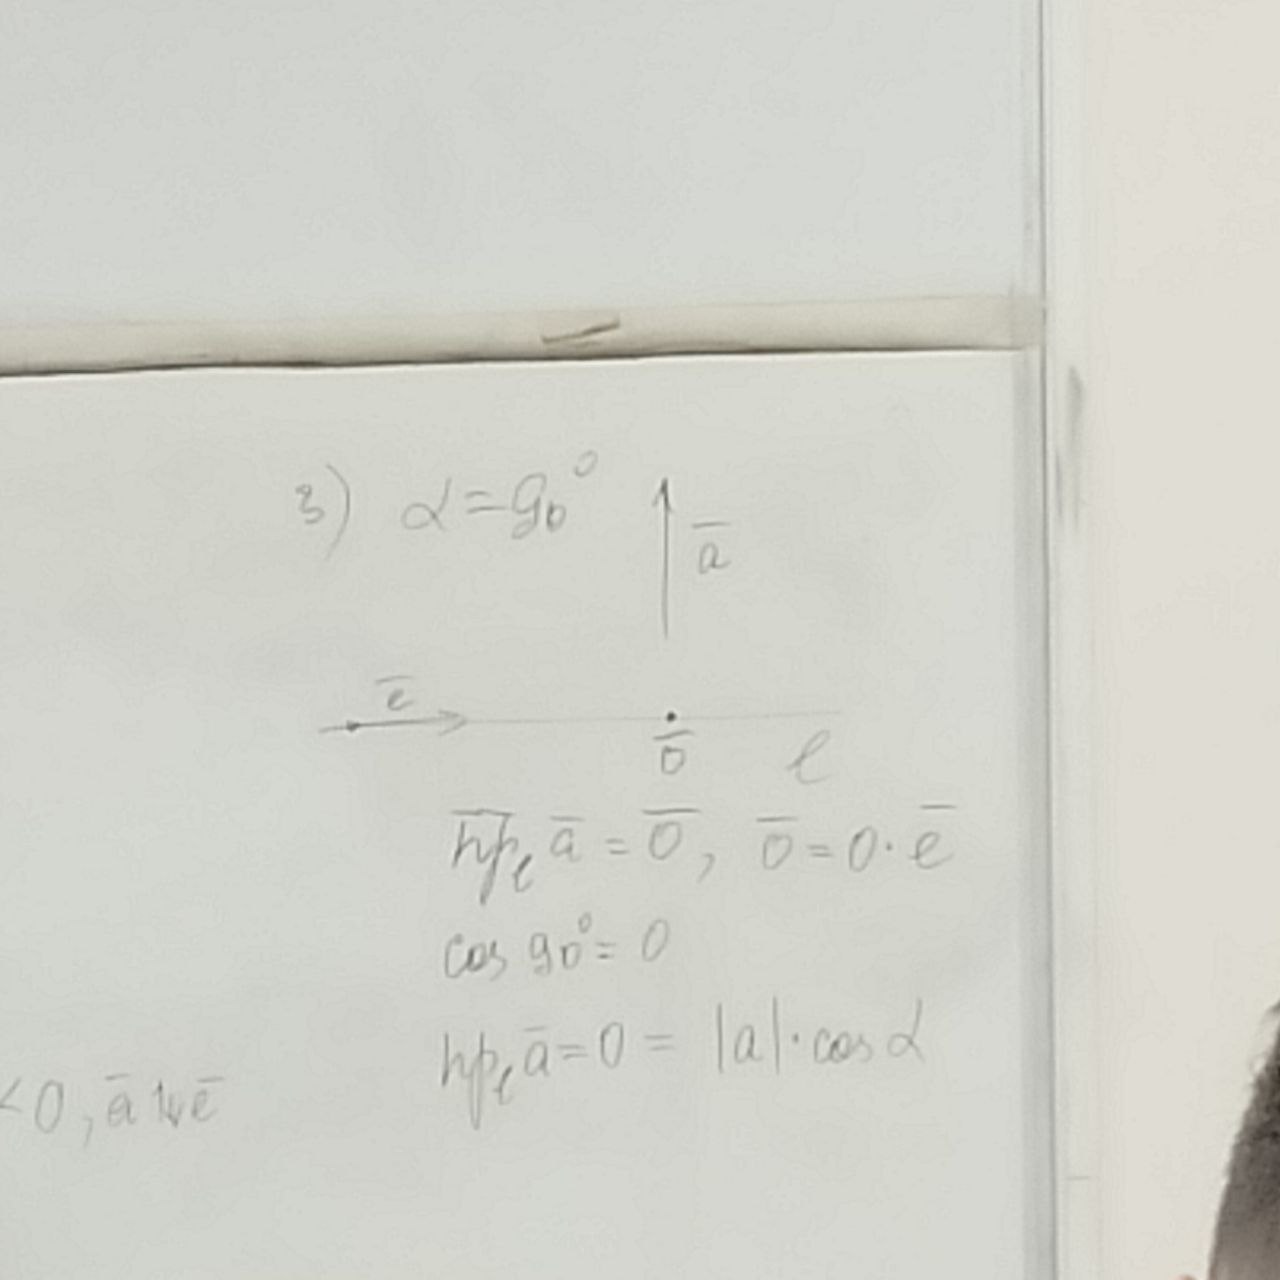 3) α = 90°
a̅
e̅
0̅ ℓ
п̅р̅_ℓ a̅ = 0̅, 0̅ = 0 · e̅
cos 90° = 0
пр_ℓ a̅ = 0 = |a| · cos α
< 0, a̅ ↑↓ e̅